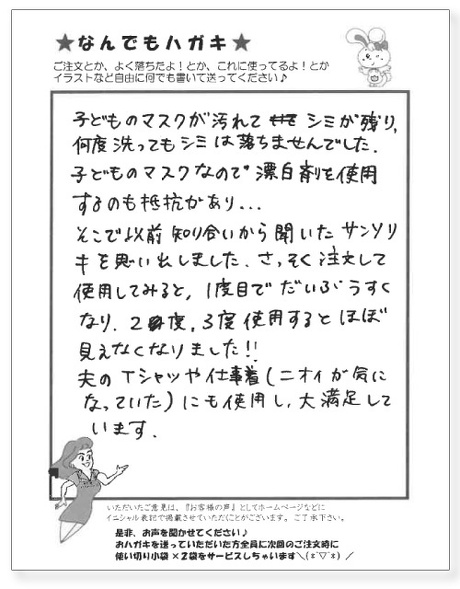 ★なんでもハガキ★
ご注文とか、よく落ちたよ！とか、これに使ってるよ！とか
イラストなど自由に何でも書いて送ってください♪
子どものマスクが汚れて シミが残り、
何度洗ってもシミは落ちませんでした.
子どものマスクなので漂白剤を使用
するのも抵抗があり...
そこで以前知り合いから聞いたサンソリ
キを思い出しました. さっそく注文して
使用してみると, 1度目でだいぶうすく
なり. 2度, 3度使用するとほぼ
見えなくなりました!!
夫のTシャツや仕事着(ニオイが気に
なっていた)にも使用し, 大満足して
います.
いただいたご意見は、『お客様の声』としてホームページなどに
イニシャル表記で掲載させていただくことがございます。ご了承下さい。
是非、お声を聞かせてください♪
おハガキを送っていただいた方全員に次回のご注文時に
使い切り小袋×２袋をサービスしちゃいます＼(*ˊ▽ˋ*)／